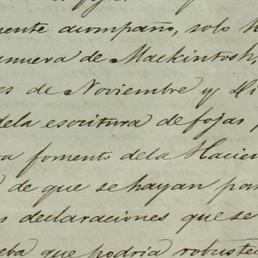 mente acompaño, solo h
nueva de Mackintosh,
es de Noviembre y Di
dela escritura de fojas
a fomento dela Hacien
de que se hayan pa
s declaraciones que se
eba que podria robuste